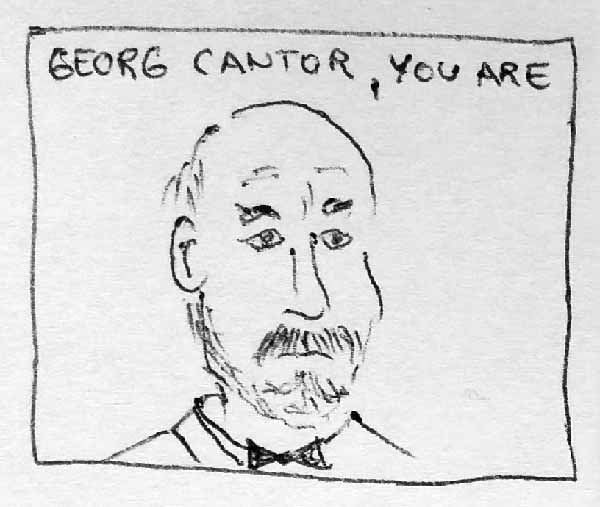 GEORG CANTOR, YOU ARE